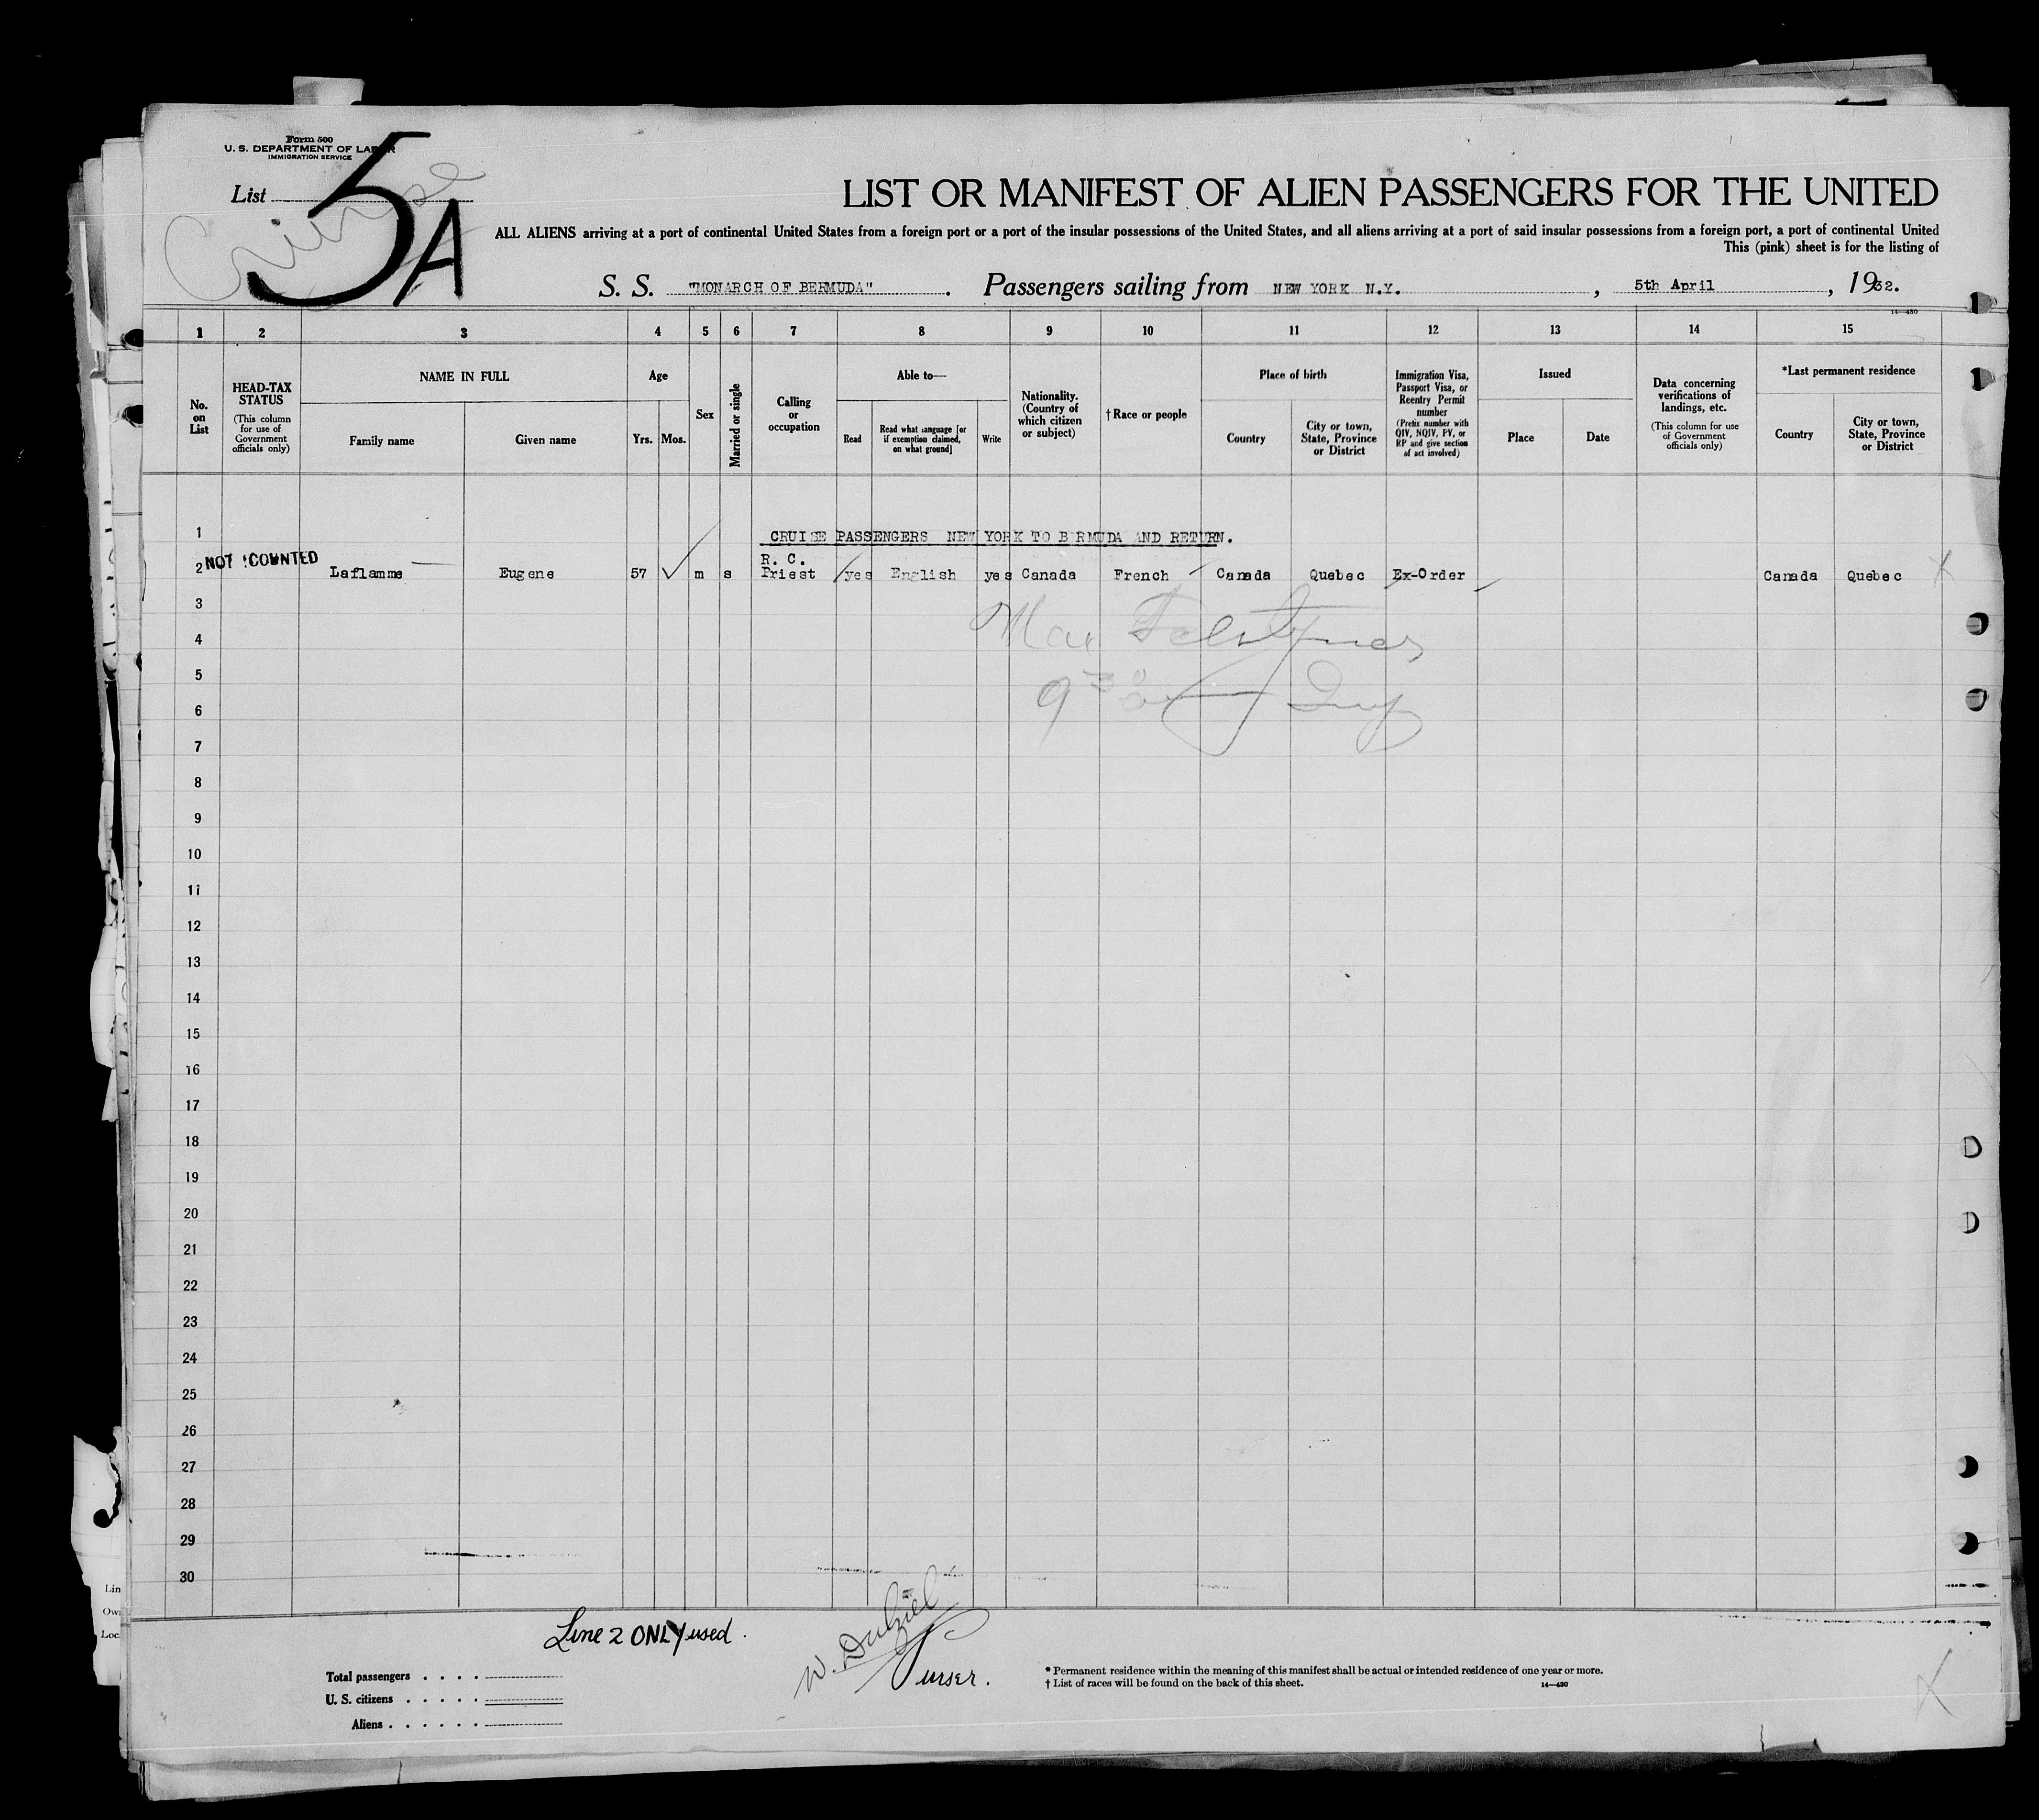 Form 500
U. S. DEPARTMENT OF LABOR
IMMIGRATION SERVICE
List
Cruise
5A
LIST OR MANIFEST OF ALIEN PASSENGERS FOR THE UNITED
ALL ALIENS arriving at a port of continental United States from a foreign port or a port of the insular possessions of the United States, and all aliens arriving at a port of said insular possessions from a foreign port, a port of continental United
This (pink) sheet is for the listing of
S. S. "MONARCH OF BERMUDA". Passengers sailing from NEW YORK N.Y. , 5th April , 1932.
14—430
1 2 3 4 5 6 7 8 9 10 11 12 13 14 15
No. on List
HEAD-TAX STATUS
(This column for use of Government officials only)
NAME IN FULL
Family name
Given name
Age
Yrs. Mos.
Sex
Married or single
Calling or occupation
Able to—
Read
Read what language [or if exemption claimed, on what ground]
Write
Nationality. (Country of which citizen or subject)
†Race or people
Place of birth
Country
City or town, State, Province or District
Immigration Visa, Passport Visa, or Reentry Permit number
(Prefix number with QIV, NQIV, PV, or RP and give section of act involved)
Issued
Place
Date
Data concerning verifications of landings, etc.
(This column for use of Government officials only)
*Last permanent residence
Country
City or town, State, Province or District
1 CRUISE PASSENGERS NEW YORK TO BERMUDA AND RETURN.
NOT COUNTED
2 Laflamme Eugene 57 m s R. C. Priest yes English yes Canada French Canada Quebec Ex-Order Canada Quebec
3
4
5
6
7
8
9
10
11
12
13
14
15
16
17
18
19
20
21
22
23
24
25
26
27
28
29
30
Line 2 ONLY used.
W. Dalziel
Purser.
Total passengers . . . .
U. S. citizens . . . . .
Aliens . . . . . .
* Permanent residence within the meaning of this manifest shall be actual or intended residence of one year or more.
† List of races will be found on the back of this sheet.
14—430
Lin
Own
Loc